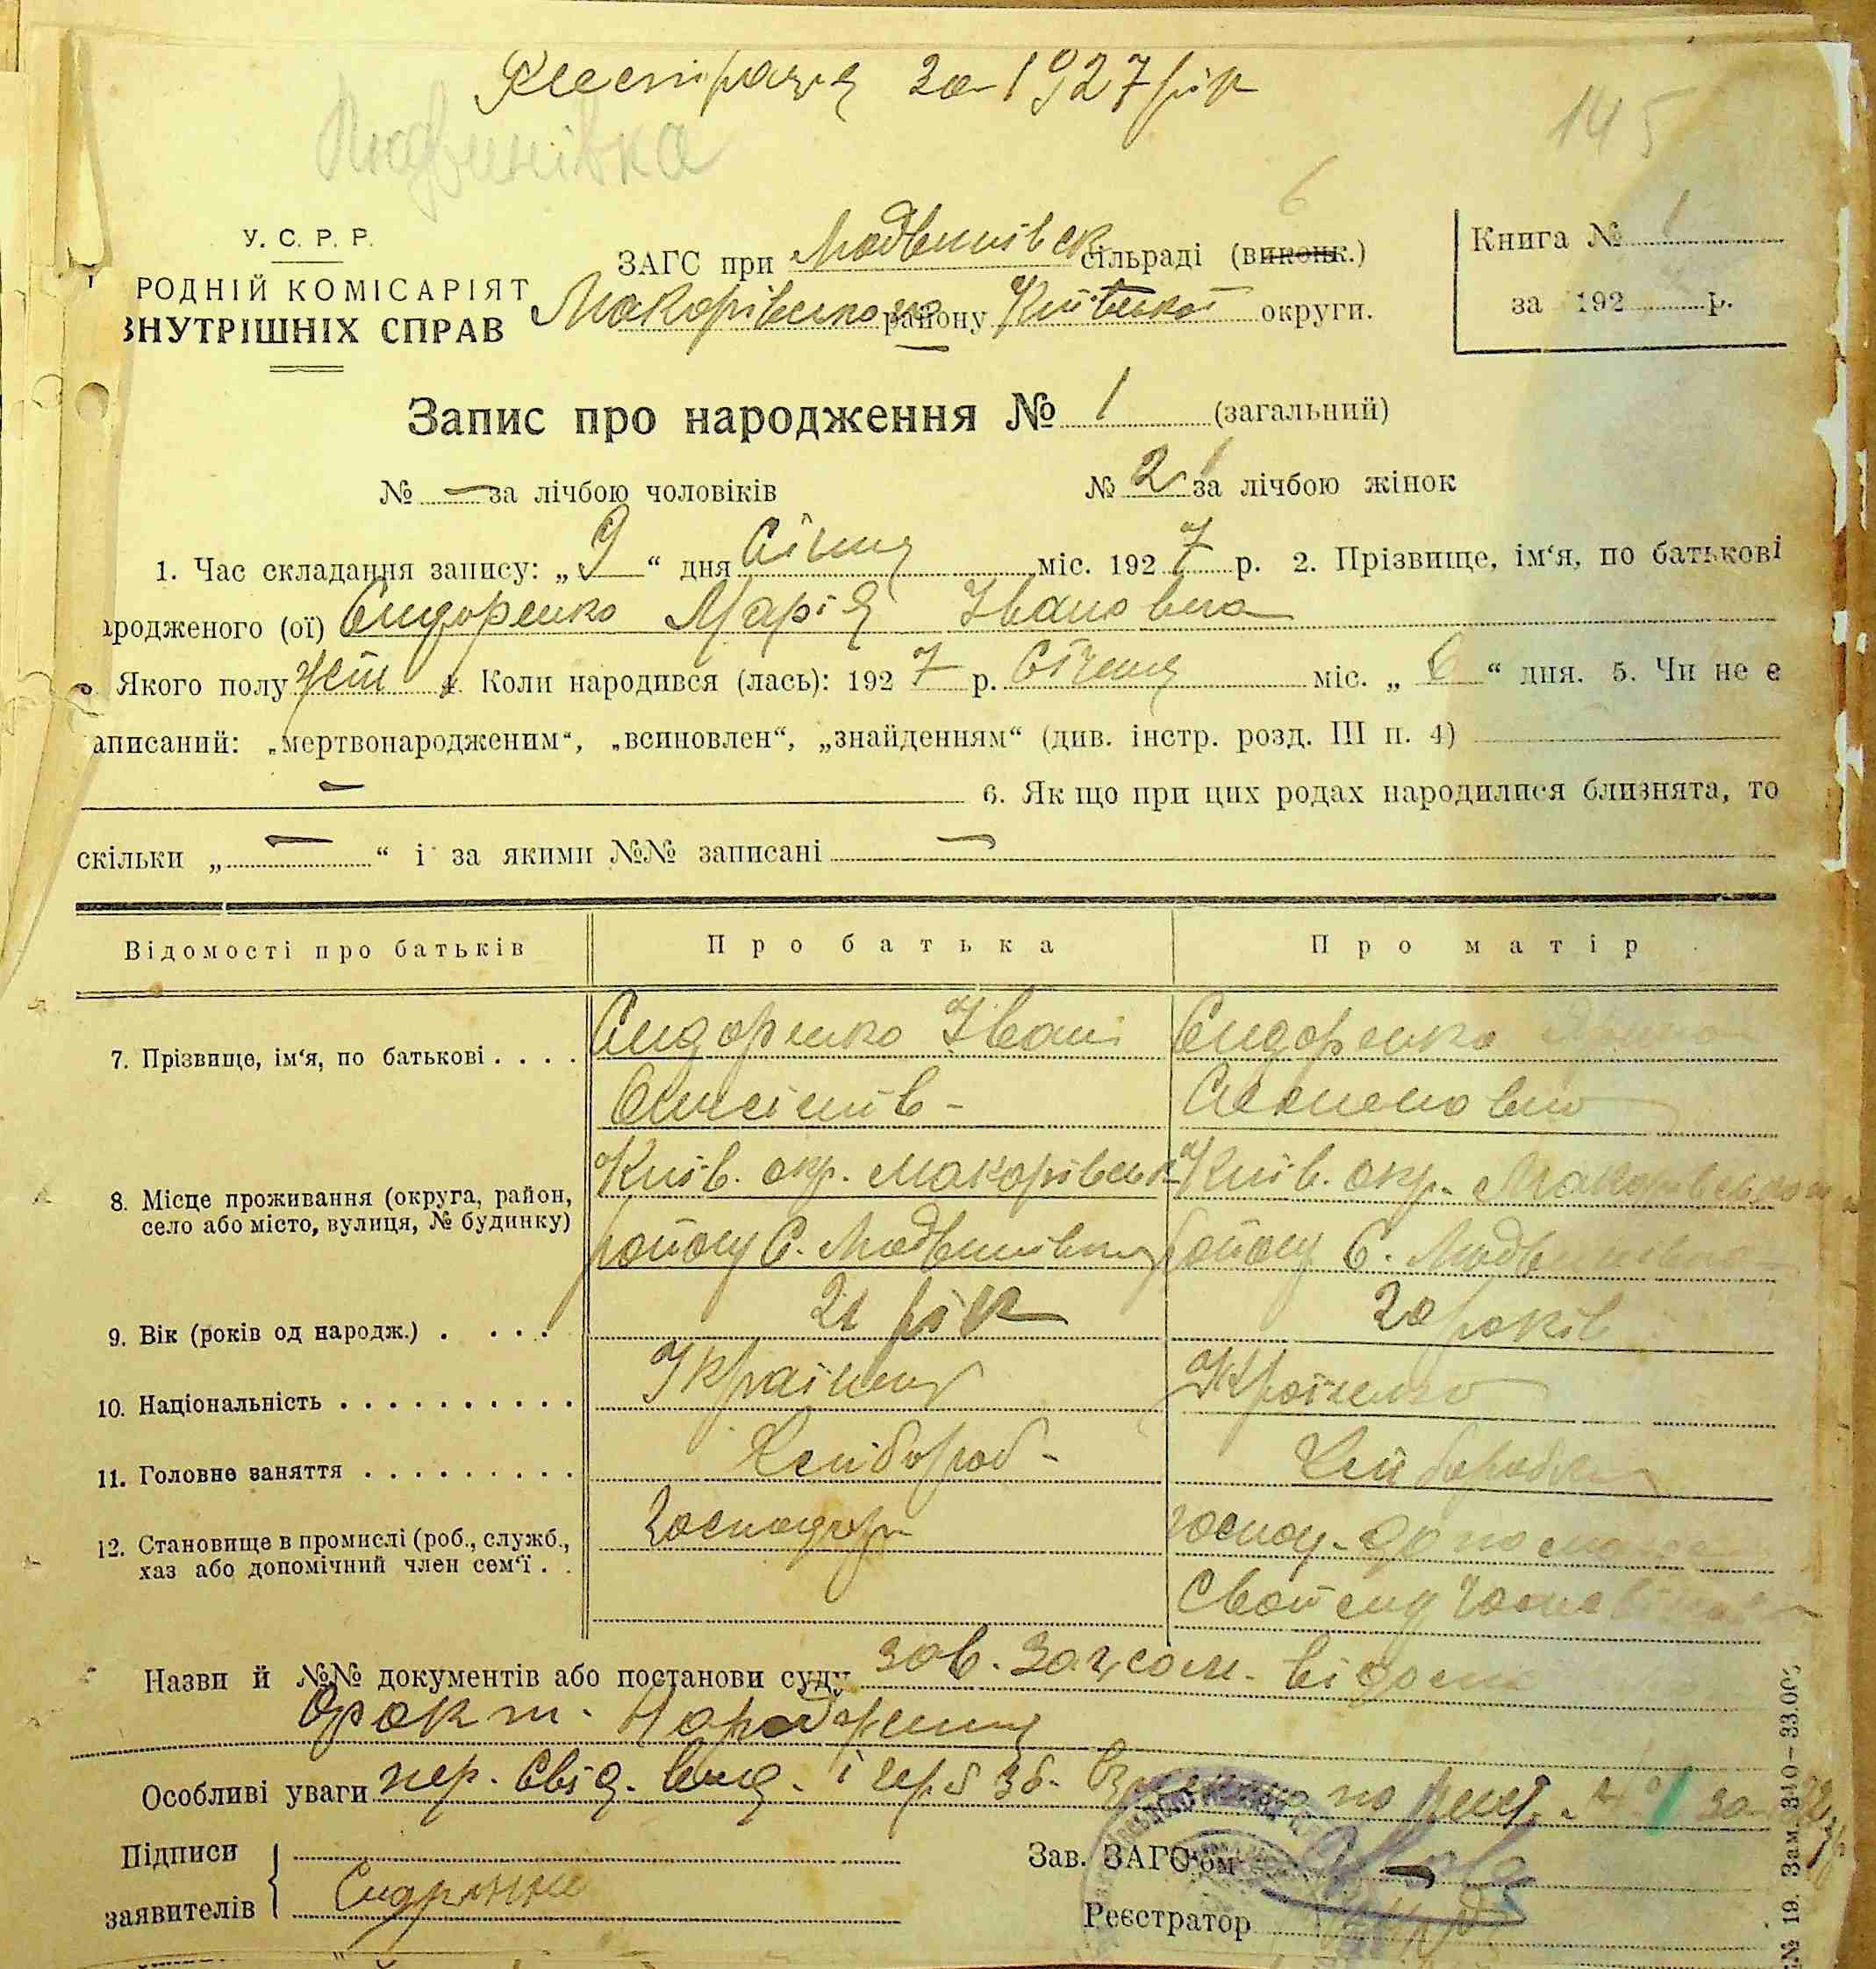 Реєстрація за 1927 рік
Людвинівка
145
6
У. С. Р. Р.
РОДНІЙ КОМІСАРІЯТ
ВНУТРІШНІХ СПРАВ
ЗАГС при Людвинівск сільраді (виконк.)
Макарівського району Київської округи.
Книга № 1
за 192 р.
Запис про народження № 1 (загальний)
№ — за лічбою чоловіків
№ 2 1 за лічбою жінок
1. Час складання запису: „ 9 “ дня Січня міс. 192 7 р. 2. Прізвище, ім‘я, по батькові
ародженого (ої) Сидоренко Марія Івановна
Якого полу жін 4. Коли народився (лась): 192 7 р. Січня міс. „ 6 “ дня. 5. Чи не є
аписаний: „мертвонародженим“, „всиновлен“, „знайденням“ (див. інстр. розд. III п. 4)
— 6. Як що при цих родах народилися близнята, то
скільки „ — “ і за якими №№ записані —
Відомості про батьків
Про батька
Про матір
7. Прізвище, ім‘я, по батькові . . . .
Сидоренко Іван
Сидоренко
8. Місце проживання (округа, район,
село або місто, вулиця, № будинку)
Київ. окр. Макарівськ
району С. Людвинівка
Київ. окр. Макарівського
району С. Людвинівка
9. Вік (років од народж.) . . . .
21 рік
20 років
10. Національність . . . . . . . . . .
Українец
Українка
11. Головне заняття . . . . . . . . .
Хлібороб-
Хліборобка
12. Становище в промислі (роб., служб.,
хаз або допомічний член сем‘ї . .
Господар
господ.
Назви й №№ документів або постанови суду зав. Загсом. відом
факт. Народження
Особливі уваги пер. свід. вид. і по реєст. № 1 за
Підписи
заявителів
Сидоренко
Зав. ЗАГС‘ом
Реєстратор
№ 19. Зам. 340—33.000